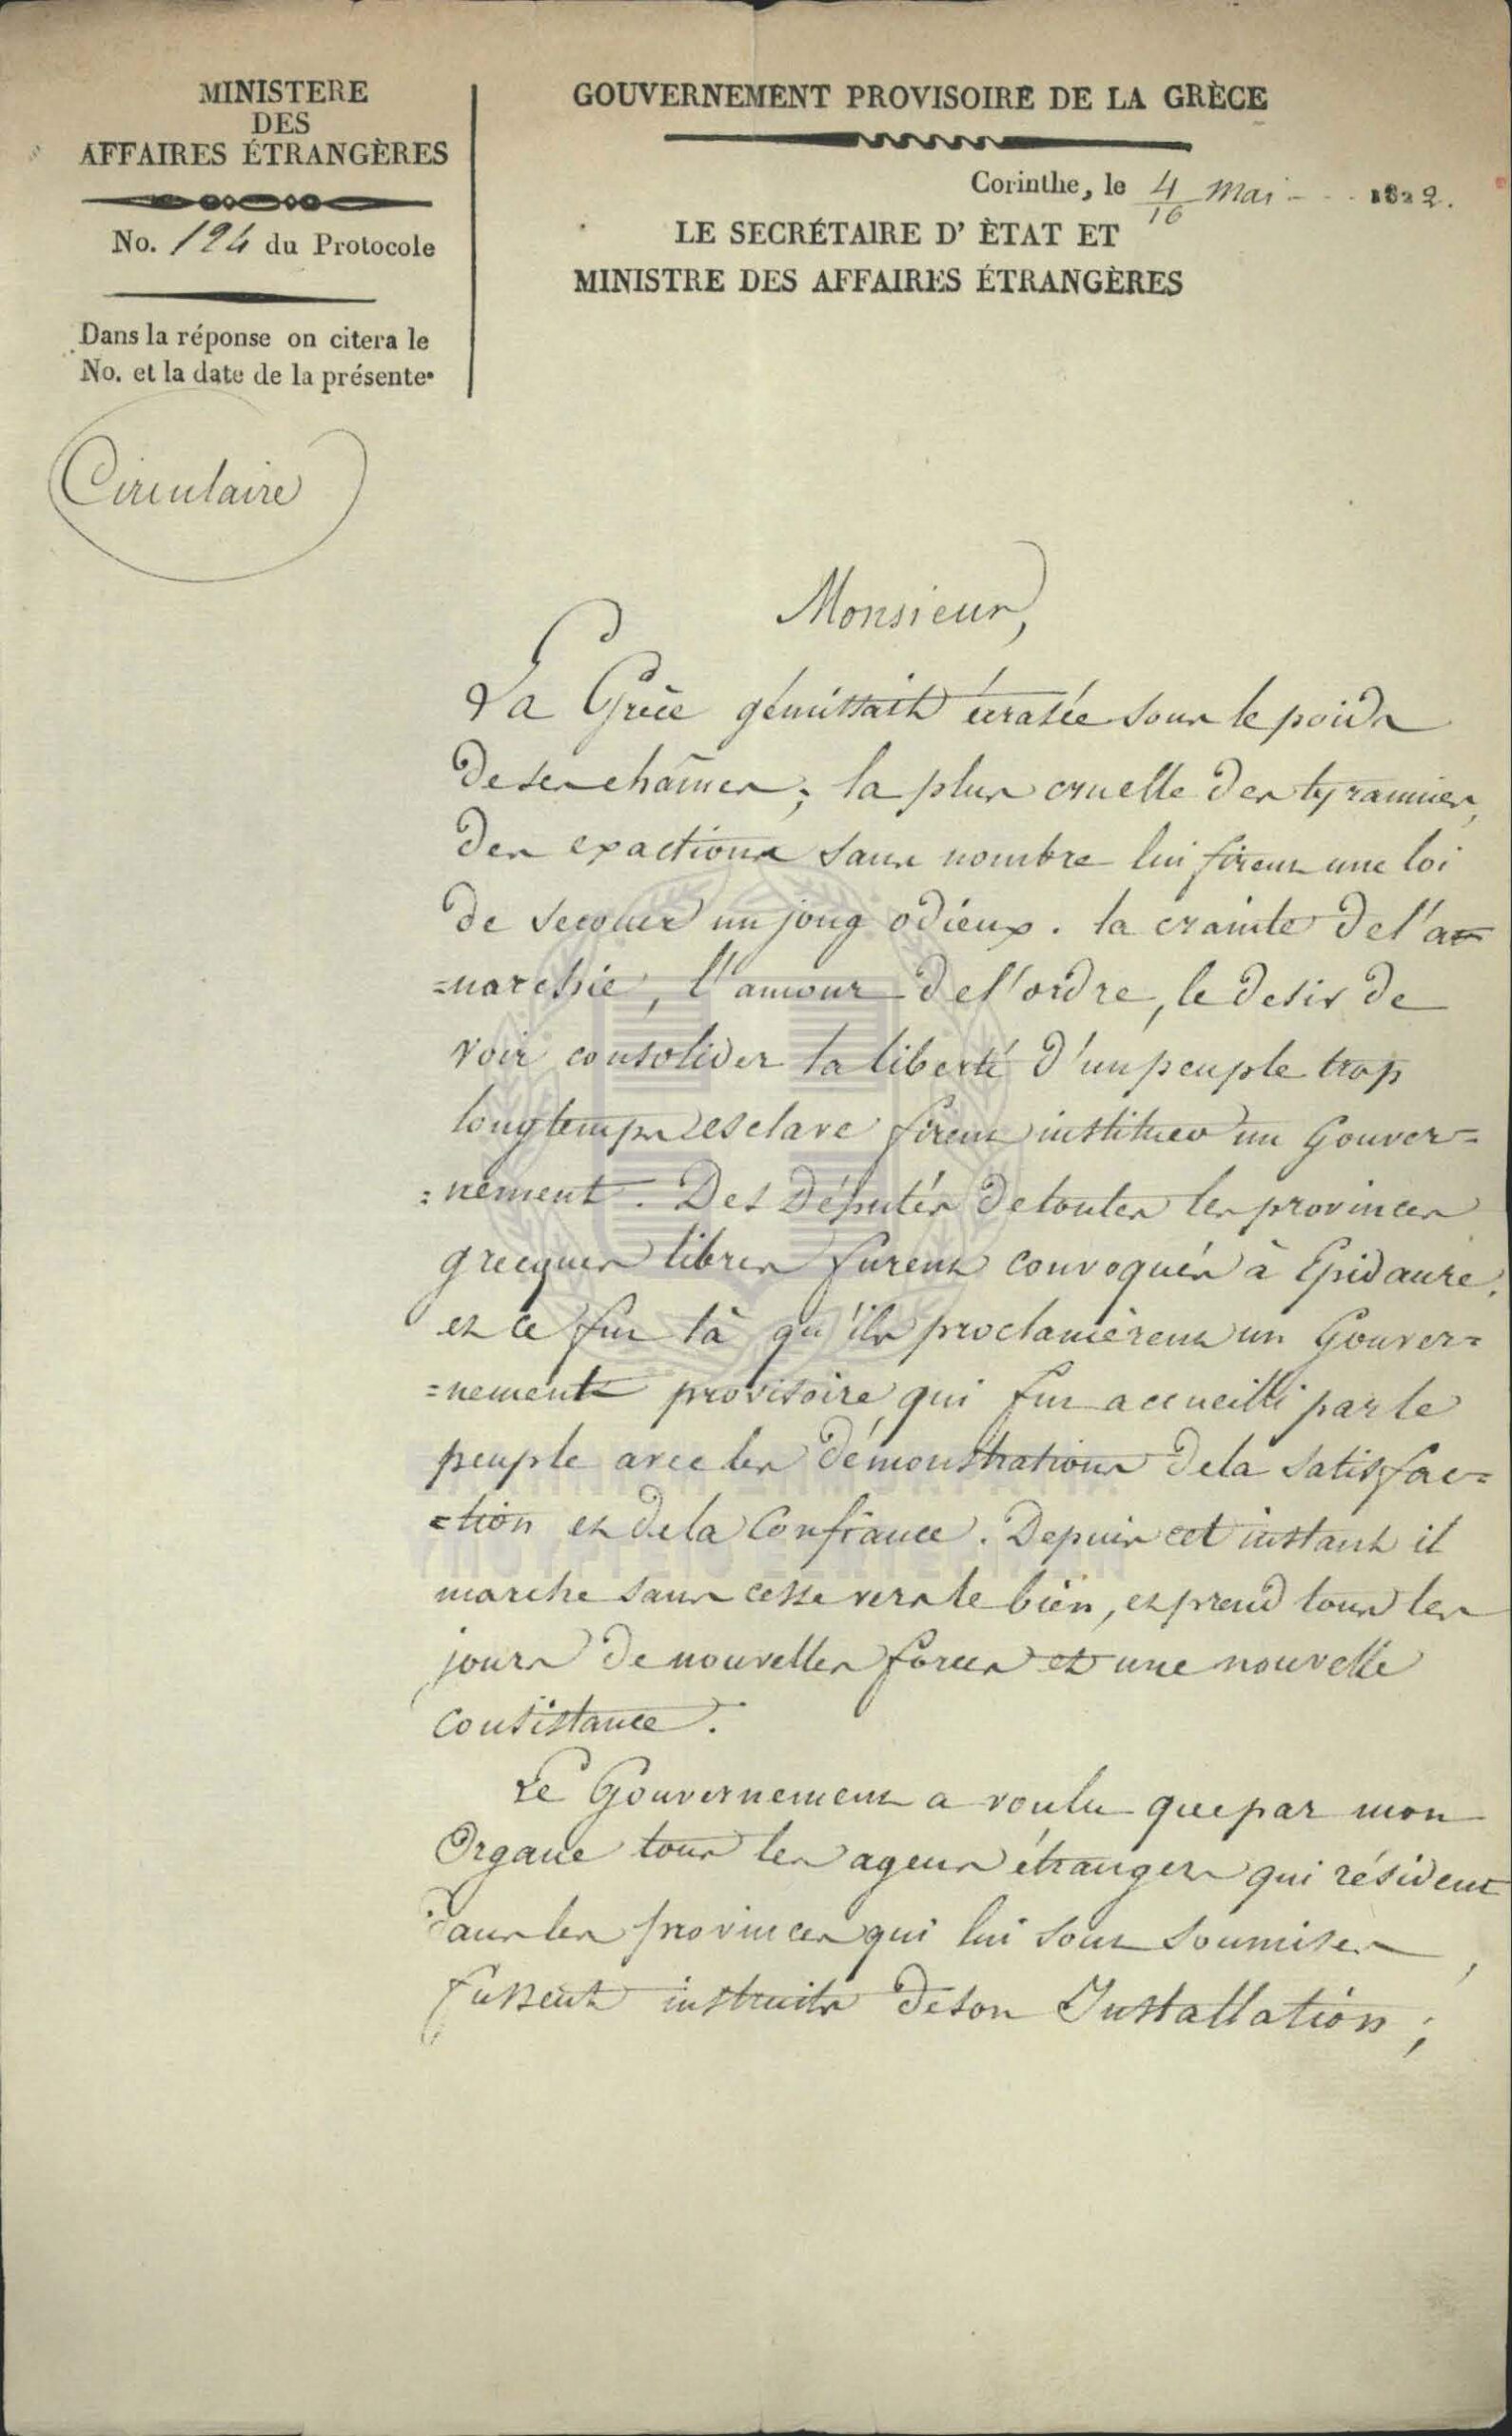 MINISTERE
DES
AFFAIRES ÉTRANGÈRES
No. 124 du Protocole
Dans la réponse on citera le
No. et la date de la présente.
Circulaire
GOUVERNEMENT PROVISOIRE DE LA GRÈCE
Corinthe, le 4/16 Mai 1822.
LE SECRÉTAIRE D' ÈTAT ET
MINISTRE DES AFFAIRES ÉTRANGÈRES
Monsieur,
La Grèce gémissait écrasée sous le poids
de ses chaînes; la plus cruelle des tyrannies,
des exactions sans nombre lui firent une loi
de secouer un joug odieux. la crainte de l'a-
=narchie, l'amour de l'ordre, le desir de
voir consolider la liberté d'un peuple trop
longtemps esclave firent instituer un Gouver=
=nement. Des Députés de toutes les provinces
grecques libres furent convoqués à Epidaure,
et ce fut là qu'ils proclamèrent un Gouver=
=nement provisoire qui fut accueilli par le
peuple avec les démonstrations de la satisfac=
=tion et de la Confiance. Depuis cet instant il
marche sans cesse vers le bien, et prend tous les
jours de nouvelles forces et une nouvelle
consistance.
Le Gouvernement a voulu que par mon
Organe tous les agens étrangers qui résident
dans les provinces qui lui sont soumises,
fussent instruits de son Installation;